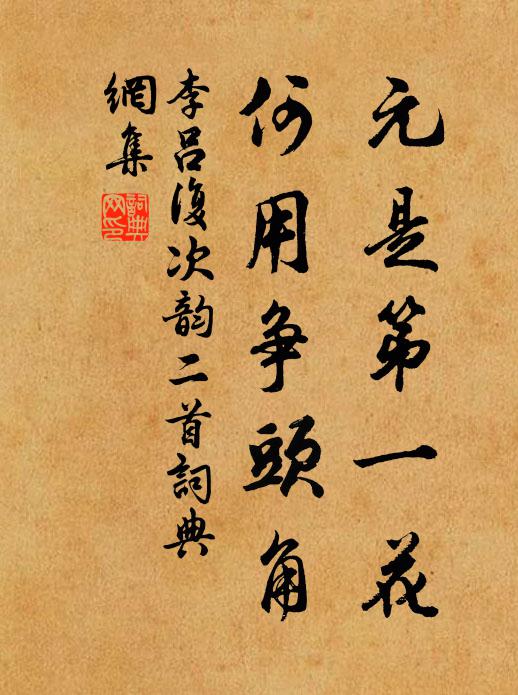 元是第一花
何用爭頭角
李呂復次韵二首詞典
網集
詞典
网印